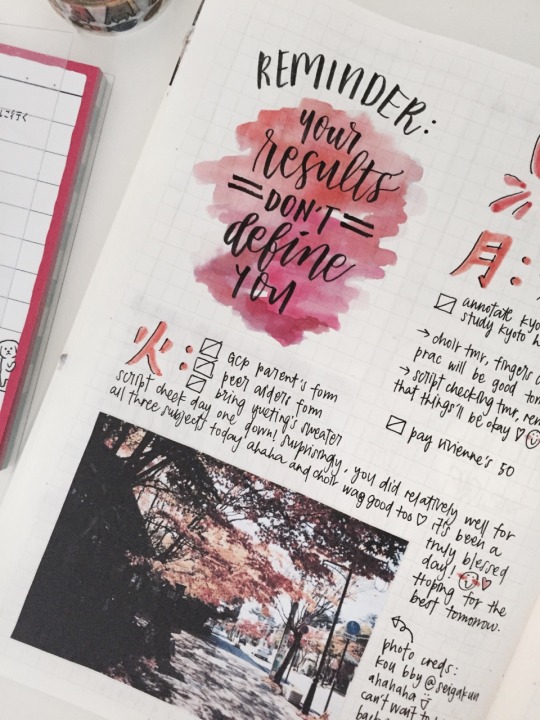 に行く
REMINDER:
your
results
DON'T
define
you
火:
GCP parent's form
peer alders form
bring yueting's sweater
script check day one down! surprisingly, you did relatively well for
all three subjects today ahaha and choir was good too♡ it's been a
truly blessed
day! ♡
Hoping for the
best tomorrow.
photo creds:
kou bby @seigakun
ahahaha
can't wait
月:
annotate kyo
study kyoto
→ choir tmr, fingers
prac will be good
→ script checking tmr,
that things'll be okay ♡
pay vivienne's 50